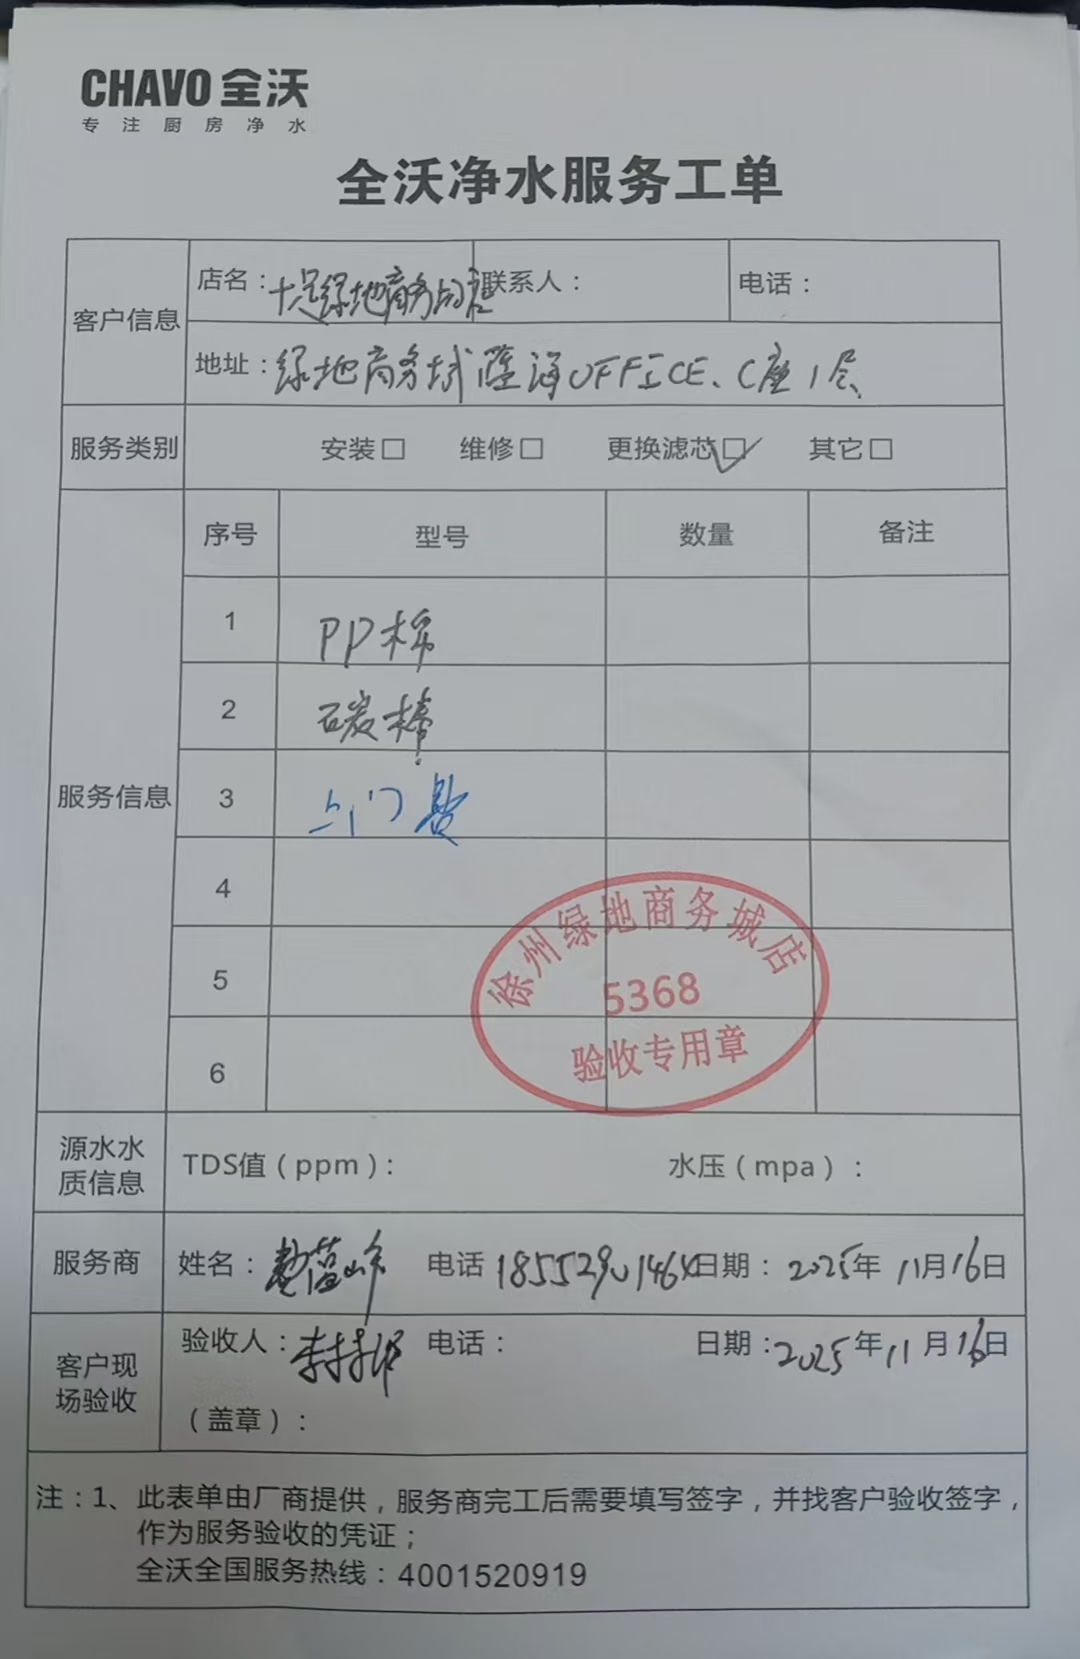 CHAVO 全沃
专注厨房净水
全沃净水服务工单
客户信息
店名：十足绿地商务城店 联系人： 电话：
地址：绿地商务城蓝海OFFICE、C座1层
服务类别 安装□ 维修□ 更换滤芯☑ 其它□
服务信息
序号 型号 数量 备注
1 PP棉
2 碳棒
3 上门费
4
5
6
徐州绿地商务城店
5368
验收专用章
源水水质信息 TDS值（ppm）： 水压（mpa）：
服务商 姓名： 电话 日期：2025年11月16日
客户现场验收 验收人：李 电话： 日期：2025年11月16日
（盖章）：
注：1、此表单由厂商提供，服务商完工后需要填写签字，并找客户验收签字，
作为服务验收的凭证；
全沃全国服务热线：4001520919